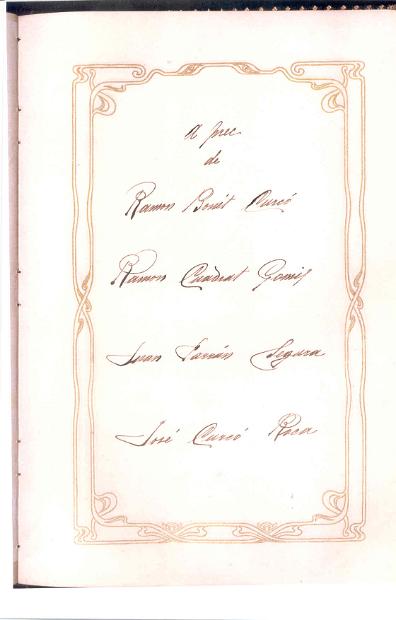 A prec
de
Ramon Benet Curcó
Ramon Cuadrat Gomis
Juan Farrán Segura
José Curcó Roca